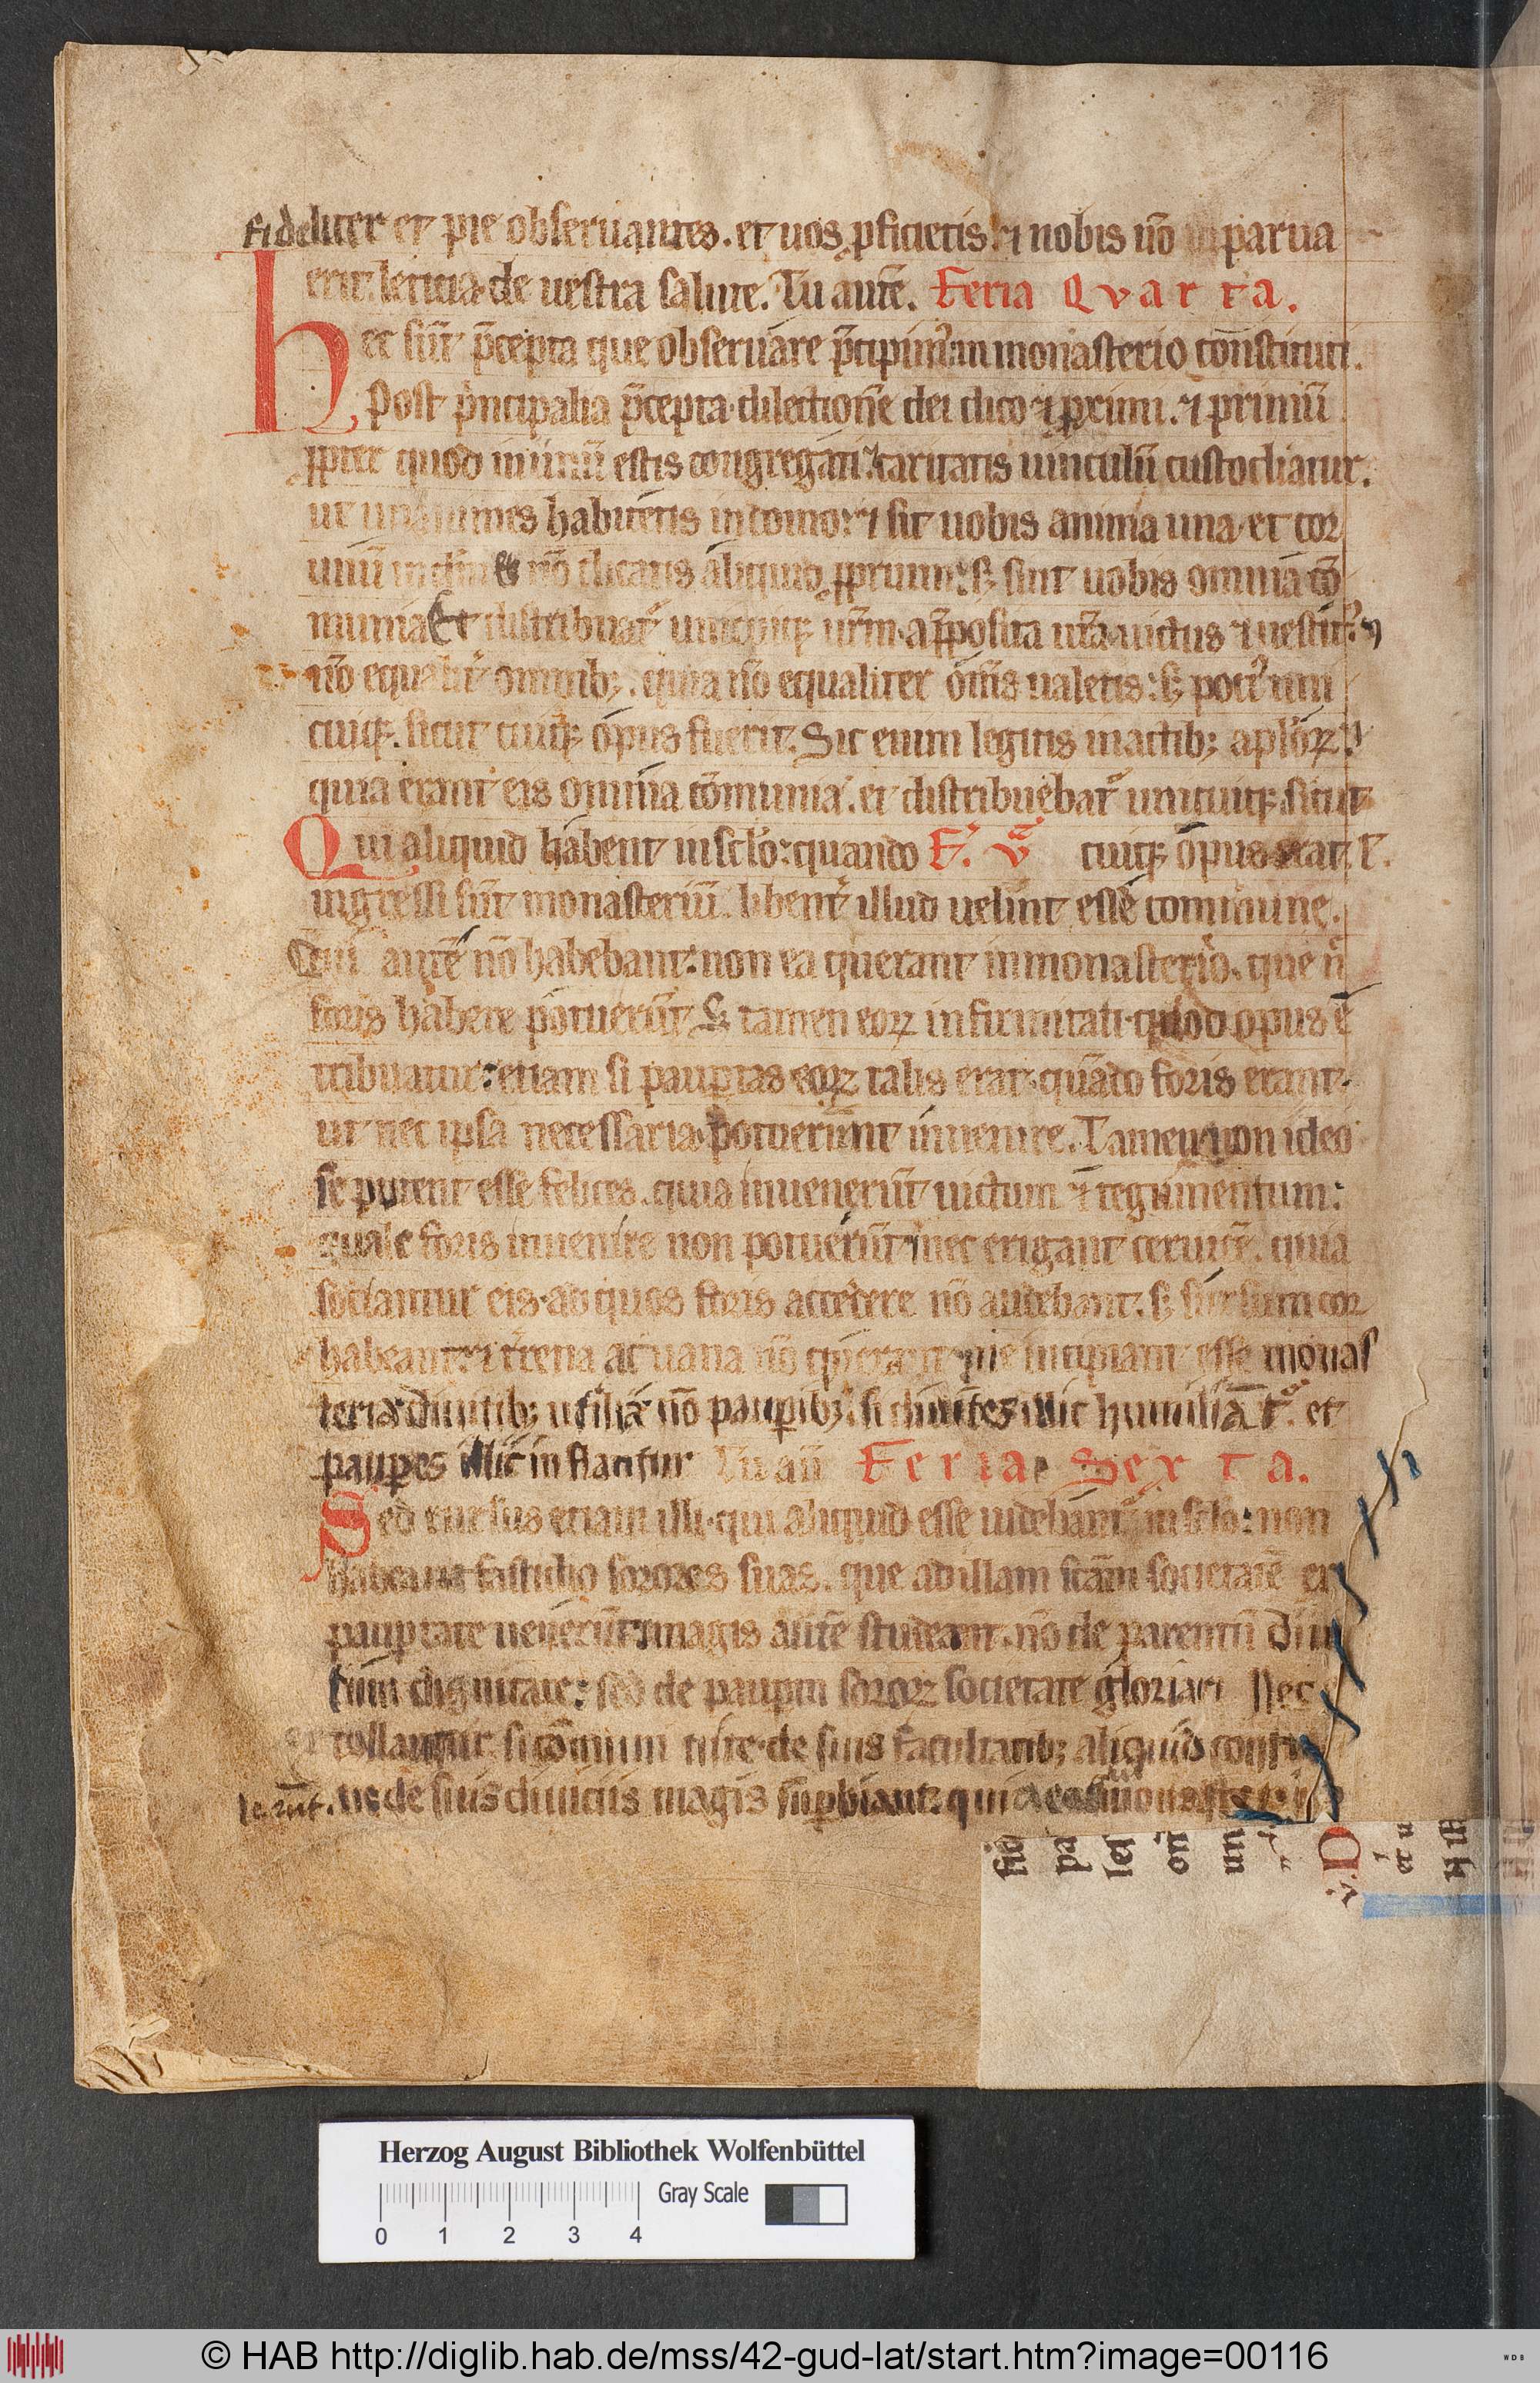 fideliter et pie obseruantes. et uos ꝓficietis: ⁊ nobis nō parua
erit leticia de uestra salute. Tu autē. Feria Qvarta.
hec sūt p̄cepta que obseruare p̄cipimꝰ in monasterio constituti.
Post p̍ncipalia p̄cepta dilectionē dei dico ⁊ ꝓximi. ⁊ primū
ꝓpter quod in unū estis congregati. caritatis uinculū custodiatur.
ut unanimes habitetis in domo: ⁊ sit uobis anima una et cor
unū in dn̄o nō dicatis aliquid ꝓprium: sꝫ sint uobis omnia cō
munia Et distribuat᷑ unicuiqꝫ ur̄m a p̄posita ur̄a uictus ⁊ uestitꝰ ⁊
nō equalit᷑ omnibꝫ. quia nō equaliter om̄s ualetis: sꝫ pociꝰ uni
cuiqꝫ. sicut cuiqꝫ opus fuerit. Sic enim legitis in actibꝫ apl̄oꝝ
quia erant eis omnia cōmunia. et distribuebat᷑ unicuiqꝫ sicut
Qui aliquid habent in sclo: quando F. v̄ cuiqꝫ opus erat. t.
ingressi sūt monasteriū. libent᷑ illud uelint esse commune.
Qui autē nō habebant: non ea querant in monasterio. que n̄
foris habere potuerūt. Sꝫ tamen eoꝝ infirmitati quod opus ē
tribuatur: etiam si pauꝑtas eoꝝ talis erat. quādo foris erant.
ut nec ipsa necessaria potuerunt inuenire. Tamen non ideo
se putent esse felices. quia inuenerūt uictum ⁊ tegumentum:
quale foris inuenire non potuerūt nec erigant ceruicē. quia
sociantur eis ad quos foris accedere nō audebant. sꝫ sursum cor
habeant: ⁊ t᷑rena ac uana nō querant ne incipiant esse monas
teria diuitibꝫ utilia nō pauꝑibꝫ. si diuites illic humiliāt᷑. et
pauꝑes illic inflantur Tu aū Feria Sexta.
Sed rursus etiam illi qui aliquid esse uidebant᷑ in sclo: non
habeant fastidio sorores suas. que ad illam scām societatē ex
pauꝑtate uenerūt: magis autē studeant. nō de parentū diui
tum dignitate: sed de pauꝑm soroꝝ societate gloriari Nec
extollantur. si cōmuni uite de suis facultatibꝫ aliquid contu
lerūt. ne de suis diuiciis magis suꝑbiant: quia eas monasterio
fid
pa
leq
on
un
v. D
et u
Herzog August Bibliothek Wolfenbüttel
Gray Scale
0 1 2 3 4
© HAB http://diglib.hab.de/mss/42-gud-lat/start.htm?image=00116
WDB